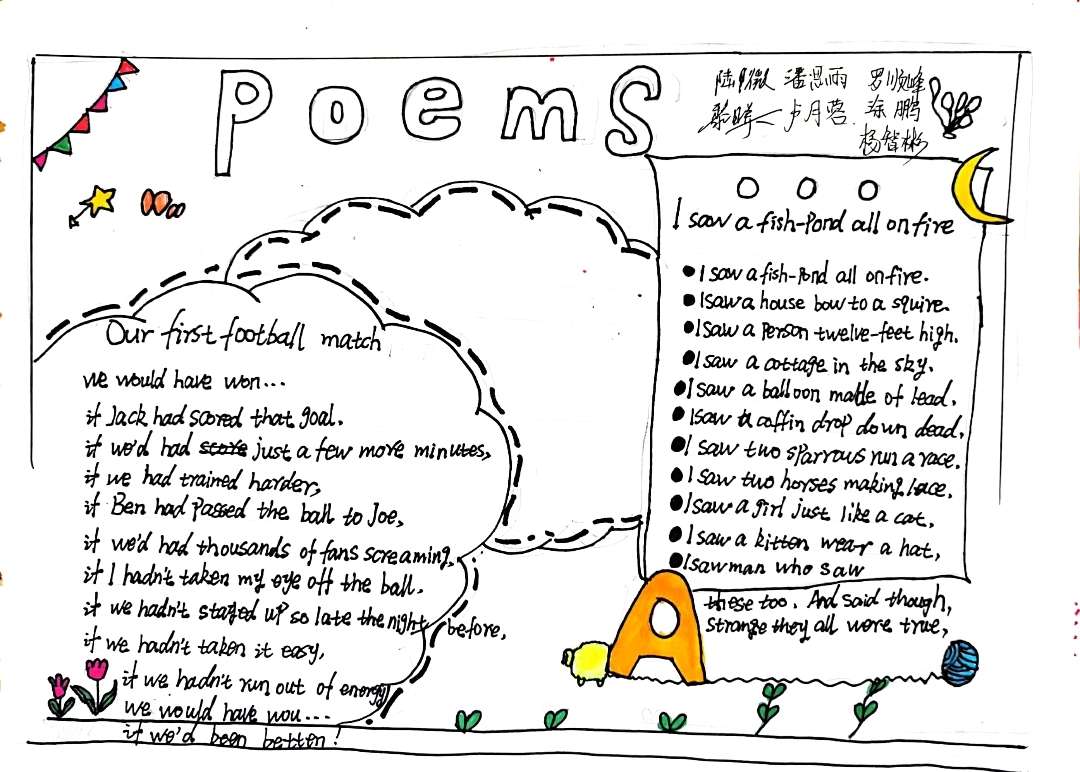 Poems
陆 微 潘思雨 罗顺峰
卢月蓉 涂鹏
杨智彬
Our first football match
we would have won...
if Jack had scored that goal.
if we'd had just a few more minutes,
if we had trained harder,
if Ben had passed the ball to Joe,
if we'd had thousands of fans screaming,
if I hadn't taken my eye off the ball.
if we hadn't stayed up so late the night before,
if we hadn't taken it easy,
if we hadn't run out of energy
we would have wou...
if we'd been better!
I saw a fish-Pond all on fire
I saw a fish-Pond all on fire.
I saw a house bow to a squire.
I saw a Person twelve-feet high.
I saw a cottage in the sky.
I saw a balloon made of lead.
I saw a coffin drop down dead.
I saw two sparrows run a race.
I saw two horses making lace.
I saw a girl just like a cat.
I saw a kitten wear a hat,
I saw man who saw
these too. And said though,
Strange they all were true,
A